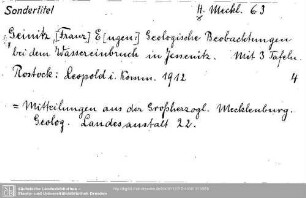 Sondertitel
H. Meckl. 63
Geinitz, [Franz] E[ugen] Geologische Beobachtungen
bei dem Wassereinbruch in Jessenitz. Mit 3 Tafeln.
Rostock: Leopold i. Komm. 1912
4
= Mitteilungen aus der Großherzogl. Mecklenburg.
Geolog. Landesanstalt 22.
Sächsische Landesbibliothek -
Staats- und Universitätsbibliothek Dresden